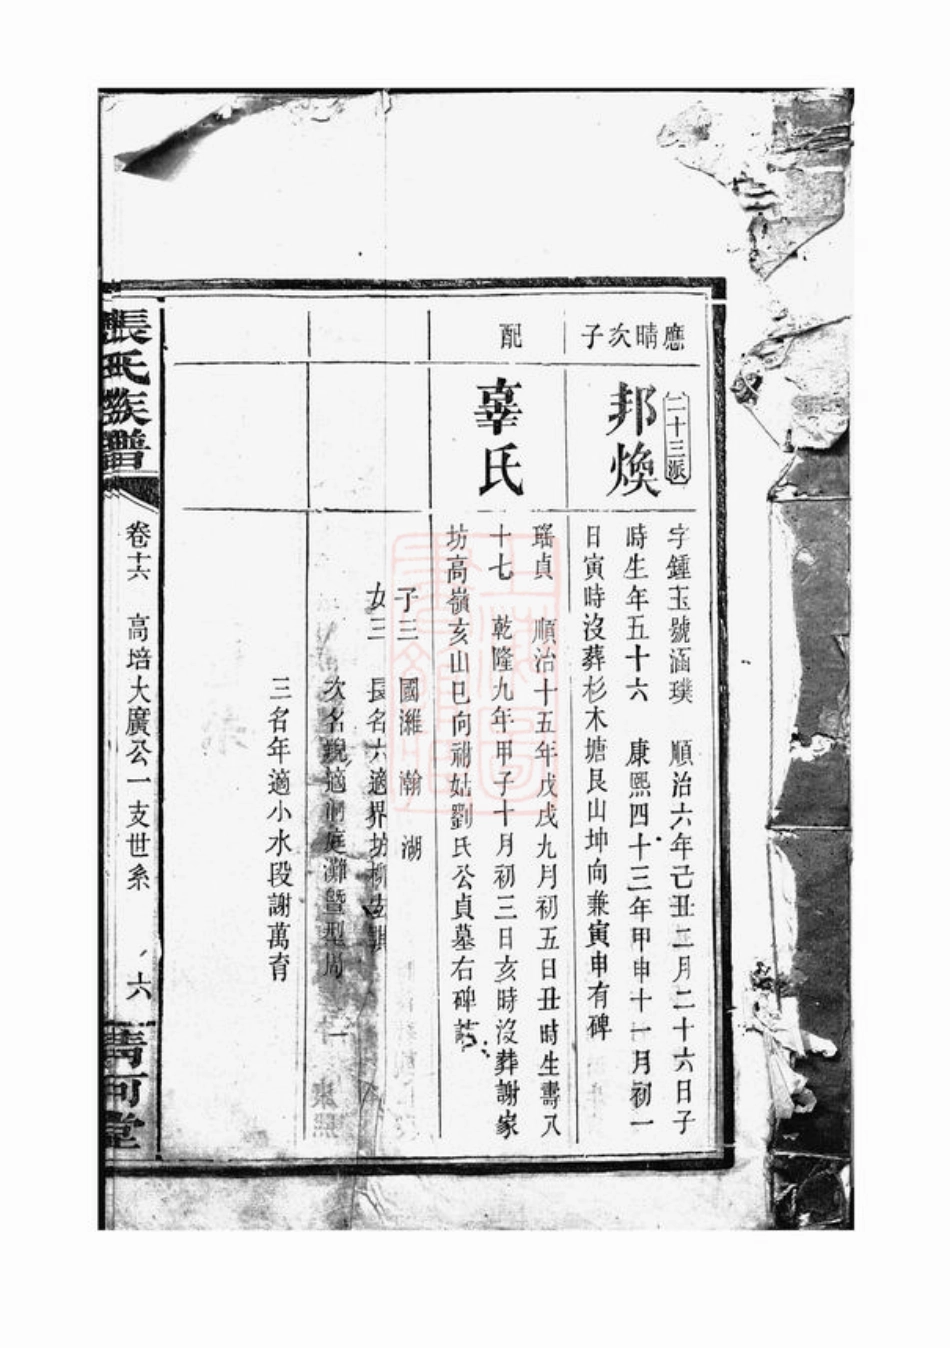 應晴次子
二十三派
邦煥
字鍾玉號涵璞　順治六年己丑二月二十六日子
時生年五十六　康熙四十三年甲申十一月初一
日寅時沒葬杉木塘艮山坤向兼寅申有碑
配
辜氏
瑤貞　順治十五年戊戌九月初五日丑時生壽八
十七　乾隆九年甲子十月初三日亥時沒葬謝家
坊高嶺亥山巳向祔姑劉氏公貞墓右碑
子三　國濰　瀚　湖
女三　長名六適界坊柳
次名　適洞庭灘暨型周
三名年適小水段謝萬育
張氏族譜
卷十六　高培大廣公一支世系
六
清河堂